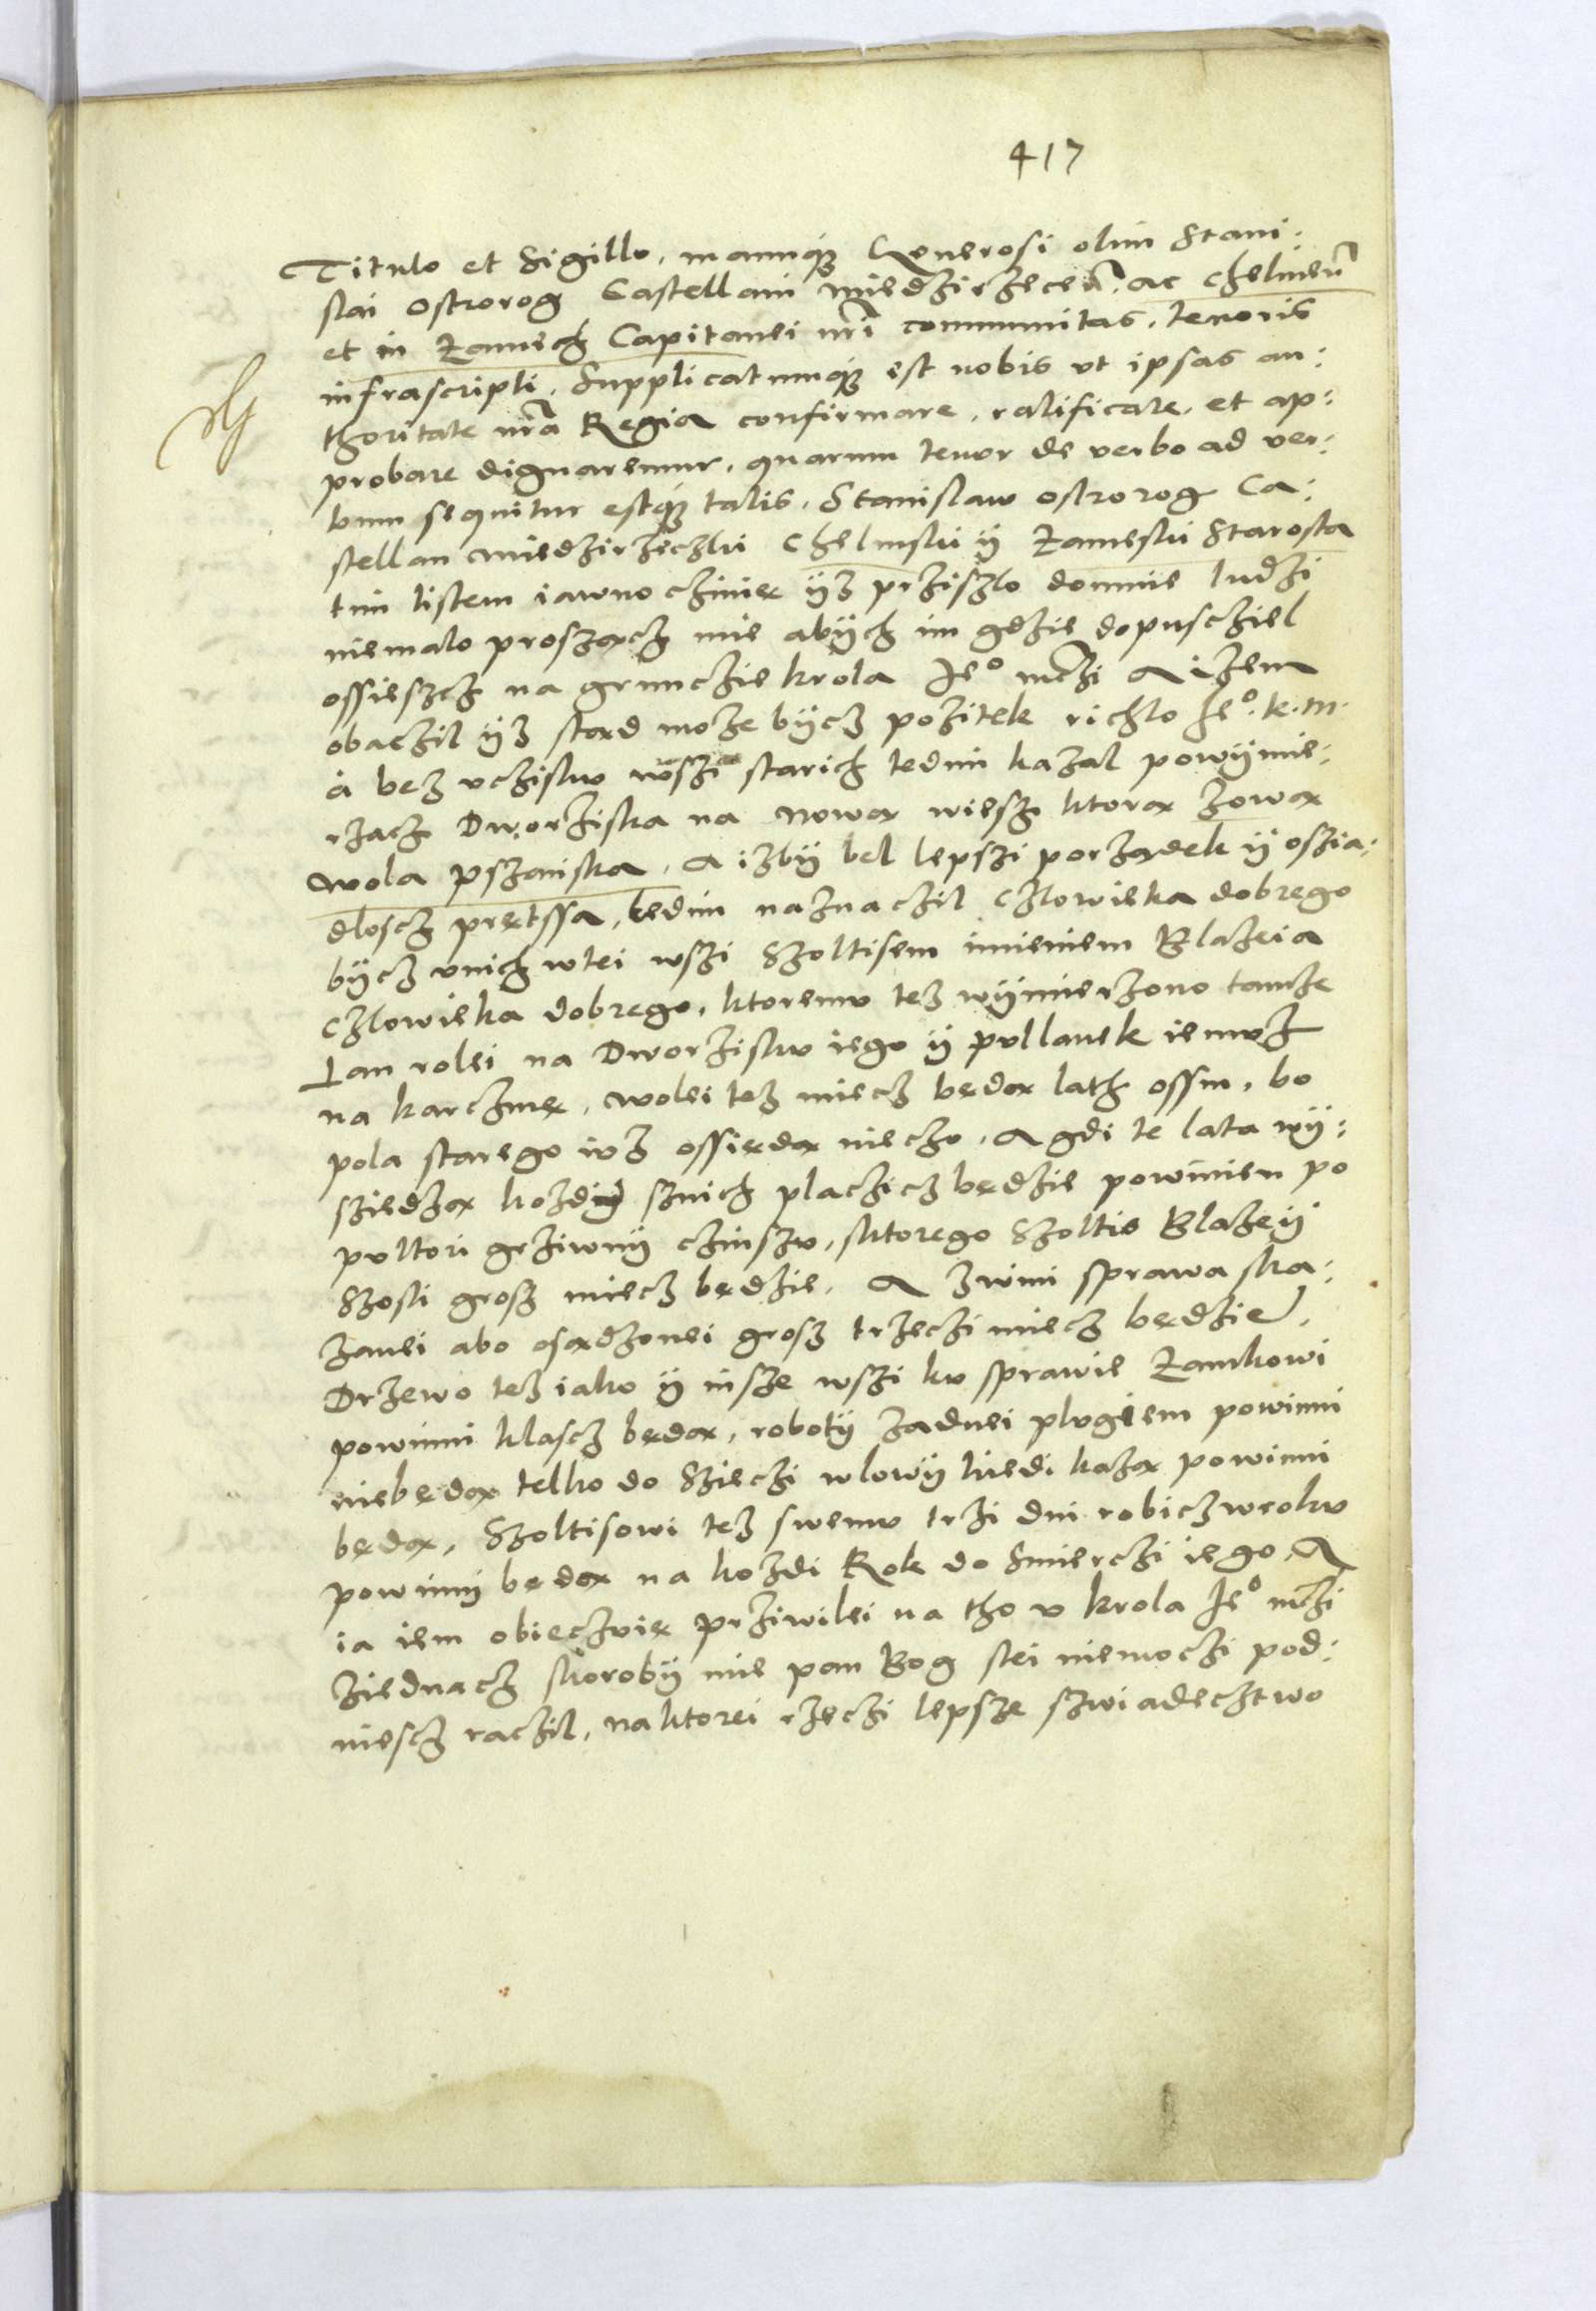 417
Titulo et Sigillo, manuq́ꝫ Generosi olim Stani:
slai Ostrorog Castellani Miedzirzeceñ. ac Chelmeñ
et in Zamech Capitanei nr̃i communitas, tenoris
infrascripti, Supplicatumq́ꝫ est nobis vt ipsas au:
thoritate nr̃a Regia confirmare, ratificare, et ap:
probare dignaremur, quarum tenor de verbo ad ver:
bum sequitur estq́ꝫ talis. Stanislaw Ostrorog Ca:
stellan Miedzirzeczki Chelmski ÿ Zameski Starosta
tim listem iawno czinię ÿz prziszlo domnie ludzi
niemalo proszącz mie abÿch im gdzie dopuscziel
ossieszcz na grunczie krola Je° mczi A iżem
obaczil ÿz stąd może bÿcz pożitek richlo Je°. k. m.
á bez vczisku wszi starich tedim kazal powÿmie:
rzacz Dworziska na nową wiesz ktorą zową
Wola Pszanska, A izbÿ bel lepszi porządek ÿ oszia:
dloscz prętssa, tedim naznaczil człowieka dobrego
bÿcz vnich wtei wszi Szoltisem imieniem Blażeia
człowieka dobrego, ktoremu tez wÿmierzono tamże
Łan rolei na Dworzisku iego ÿ pullanek iemuż
na karczmę, wolei tez miecz będą lath ossm, bo
pola starego iuz ossiędą nieczo, A gdi te lata wÿ:
sziedzą kożdi sznich placzicz będzie powinien po
pultori grziwnÿ czinszu, sktorego Szoltis Blażeÿ
Szosti grosz miecz będzie, A zwini sprawa ska:
zanei abo osądzonei grosz trzeczi miecz będzie,
Drzewo tez iako ÿ insze wszi ku sprawie Zamkowi
powinni klascz będą, robotÿ żadnei plugiem powinni
niebędą telko do Szieczi wlowÿ kiedi każą powinni
będą, Szoltisowi tez swemu trzi dni robicz wroku
powinnÿ będą na kożdi Rok do smierczi iego, A
ia iem obieczuię prziwilei na tho v krola Je° mczi
ziednacz skorobÿ mie pan Bog stei niemoczi pod:
niescz raczil, naktorei rzeczi lepsze szwiadecztwo